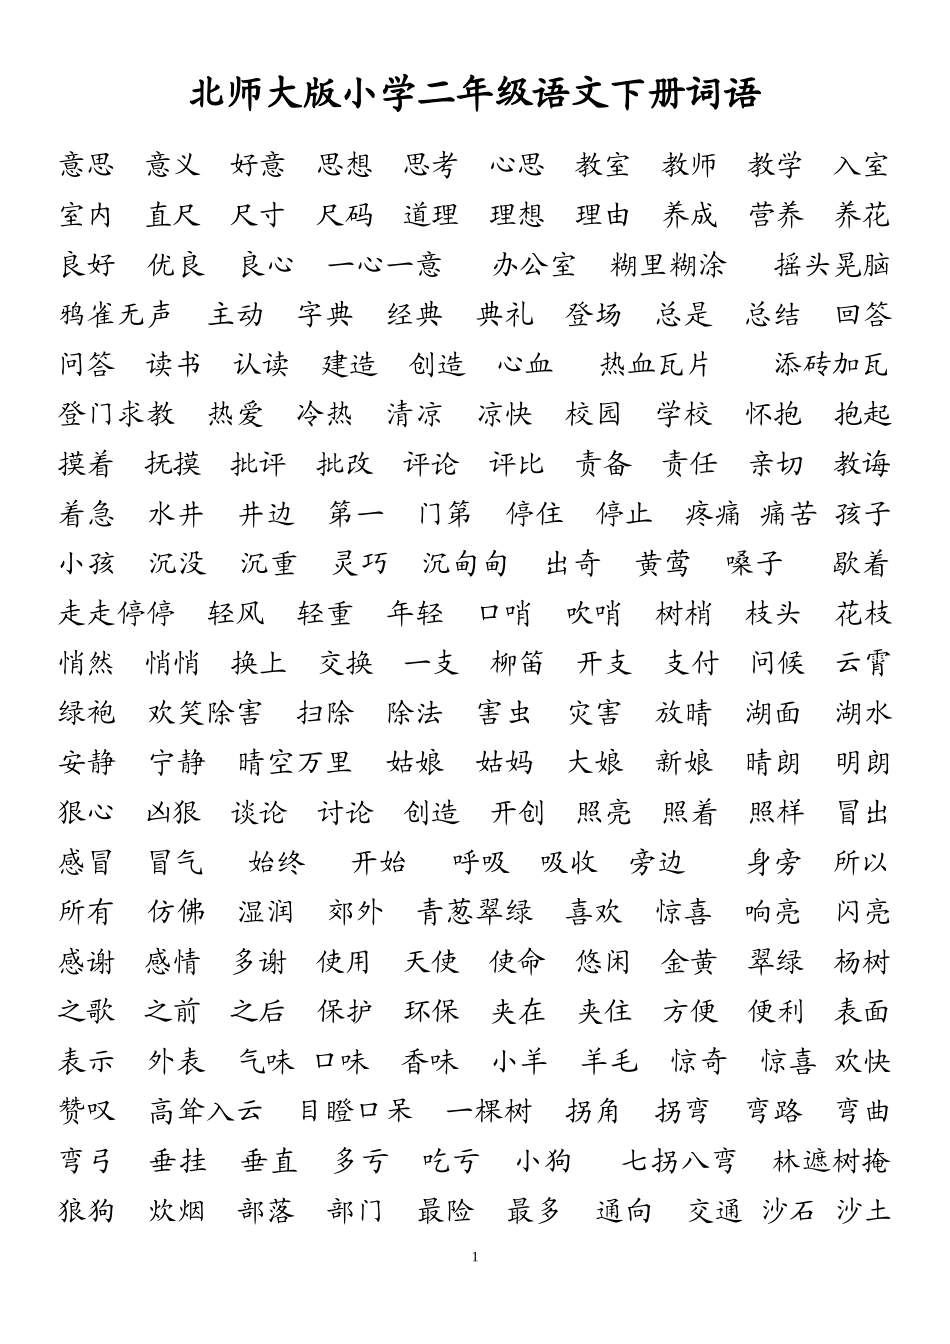 北师大版小学二年级语文下册词语
意思 意义 好意 思想 思考 心思 教室 教师 教学 入室
室内 直尺 尺寸 尺码 道理 理想 理由 养成 营养 养花
良好 优良 良心 一心一意 办公室 糊里糊涂 摇头晃脑
鸦雀无声 主动 字典 经典 典礼 登场 总是 总结 回答
问答 读书 认读 建造 创造 心血 热血瓦片 添砖加瓦
登门求教 热爱 冷热 清凉 凉快 校园 学校 怀抱 抱起
摸着 抚摸 批评 批改 评论 评比 责备 责任 亲切 教诲
着急 水井 井边 第一 门第 停住 停止 疼痛 痛苦 孩子
小孩 沉没 沉重 灵巧 沉甸甸 出奇 黄莺 嗓子 歇着
走走停停 轻风 轻重 年轻 口哨 吹哨 树梢 枝头 花枝
悄然 悄悄 换上 交换 一支 柳笛 开支 支付 问候 云霄
绿袍 欢笑除害 扫除 除法 害虫 灾害 放晴 湖面 湖水
安静 宁静 晴空万里 姑娘 姑妈 大娘 新娘 晴朗 明朗
狠心 凶狠 谈论 讨论 创造 开创 照亮 照着 照样 冒出
感冒 冒气 始终 开始 呼吸 吸收 旁边 身旁 所以
所有 仿佛 湿润 郊外 青葱翠绿 喜欢 惊喜 响亮 闪亮
感谢 感情 多谢 使用 天使 使命 悠闲 金黄 翠绿 杨树
之歌 之前 之后 保护 环保 夹在 夹住 方便 便利 表面
表示 外表 气味 口味 香味 小羊 羊毛 惊奇 惊喜 欢快
赞叹 高耸入云 目瞪口呆 一棵树 拐角 拐弯 弯路 弯曲
弯弓 垂挂 垂直 多亏 吃亏 小狗 七拐八弯 林遮树掩
狼狗 炊烟 部落 部门 最险 最多 通向 交通 沙石 沙土
1